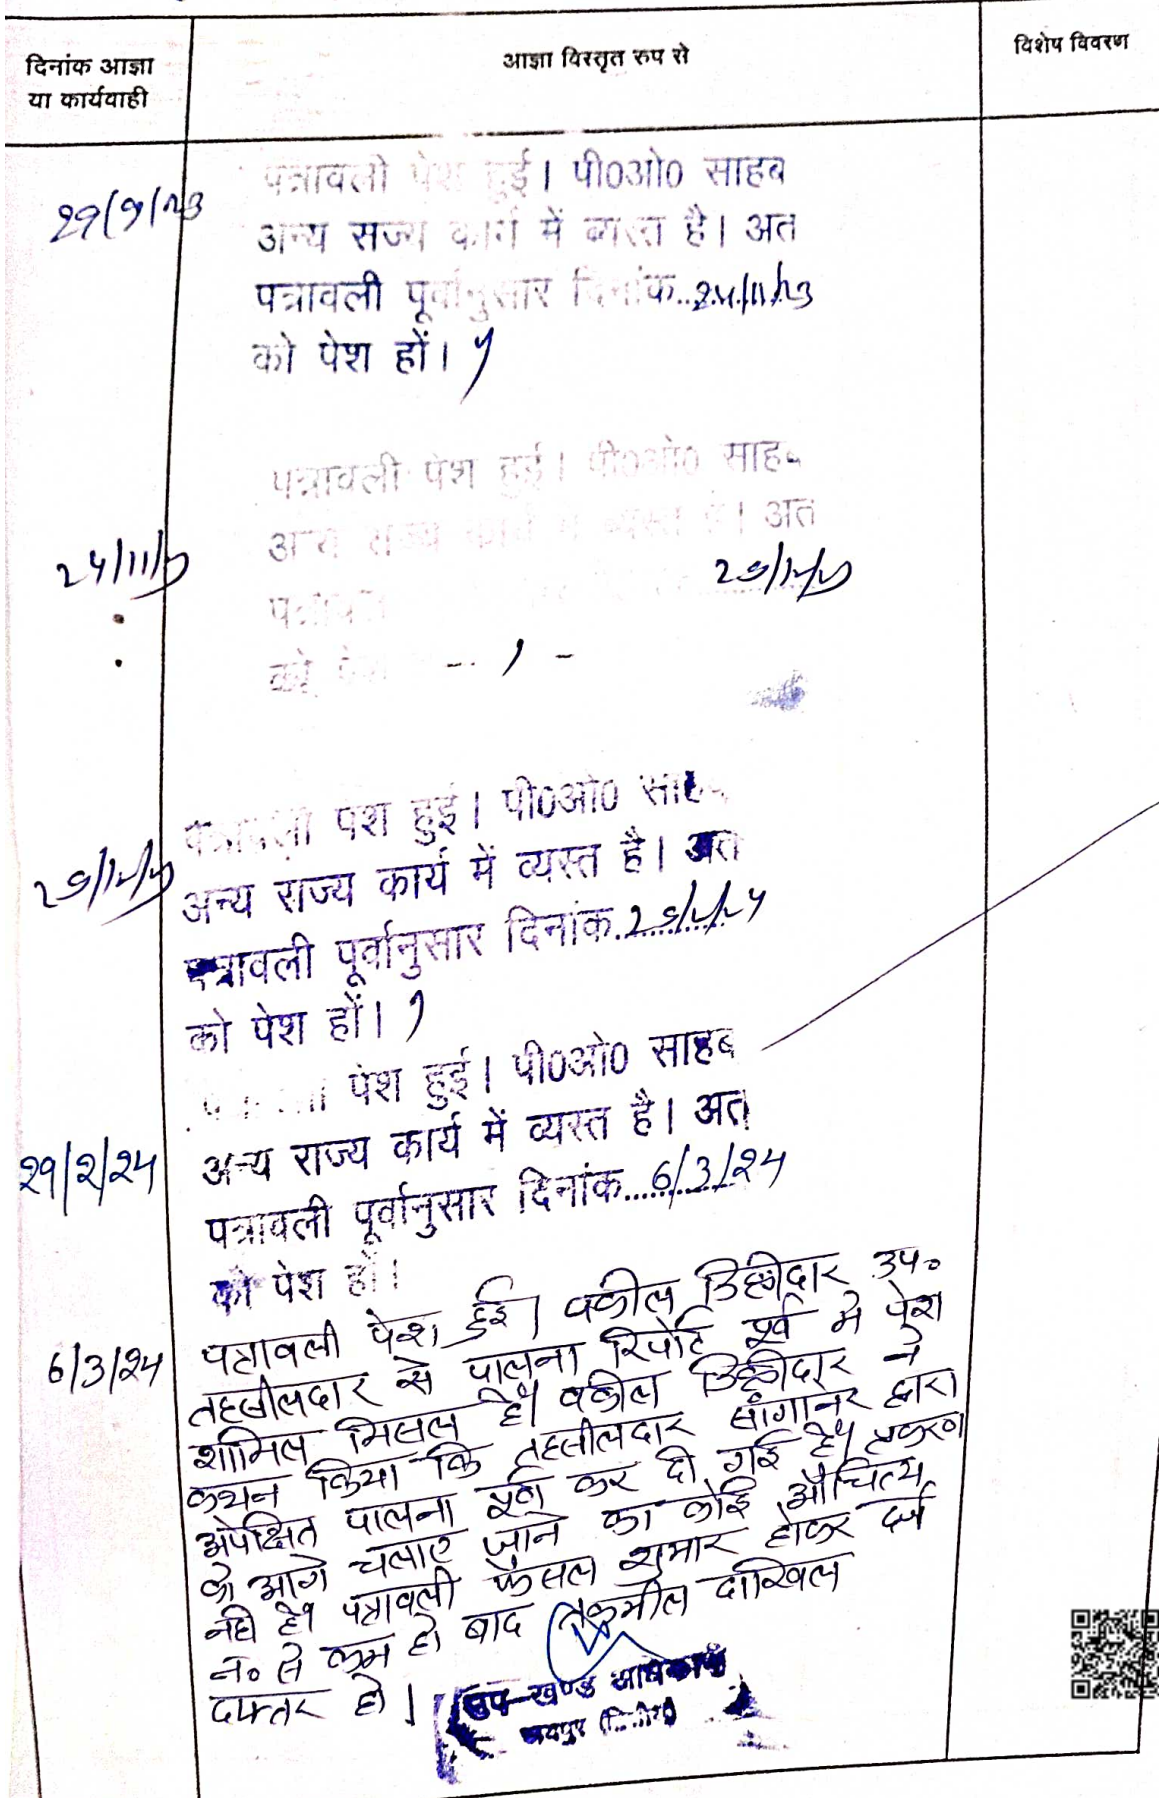 दिनांक आज्ञा
या कार्यवाही
आज्ञा विस्तृत रुप से
विशेष विवरण
29/9/23
पत्रावली पेश हुई। पी0ओ0 साहब
अन्य सज्य कार्य में व्यस्त है। अत
पत्रावली पूर्वानुसार दिनांक..24/11/23
को पेश हों।
24/11/23
पत्रावली पेश हुई। पी0ओ0 साहब
अन्य राज्य कार्य में व्यस्त है। अत
को पेश
पत्रावली पेश हुई। पी0ओ0 साहब
अन्य राज्य कार्य में व्यस्त है। अत
पत्रावली पूर्वानुसार दिनांक
को पेश हों।
पेश हुई। पी0ओ0 साहब
29/2/24
अन्य राज्य कार्य में व्यस्त है। अत
पत्रावली पूर्वानुसार दिनांक...6/3/24
को पेश हों।
6/3/24
पत्रावली पेश हुई। वकील डिक्रीदार उप०
तहसीलदार से पालना रिपोर्ट पूर्व मे पेश
शामिल मिसल है। वकील डिक्रीदार ने
कथन किया कि तहसीलदार सांगानेर द्वारा
अपेक्षित पालना पूर्ण कर दी गई है। प्रकरण
को आगे चलाए जाने का कोई औचित्य
नही है। पत्रावली फैसल शुमार होकर दर्ज
न० से कम हो बाद तकमील दाखिल
दफ्तर हो।
उप-खण्ड अधिकारी
जयपुर